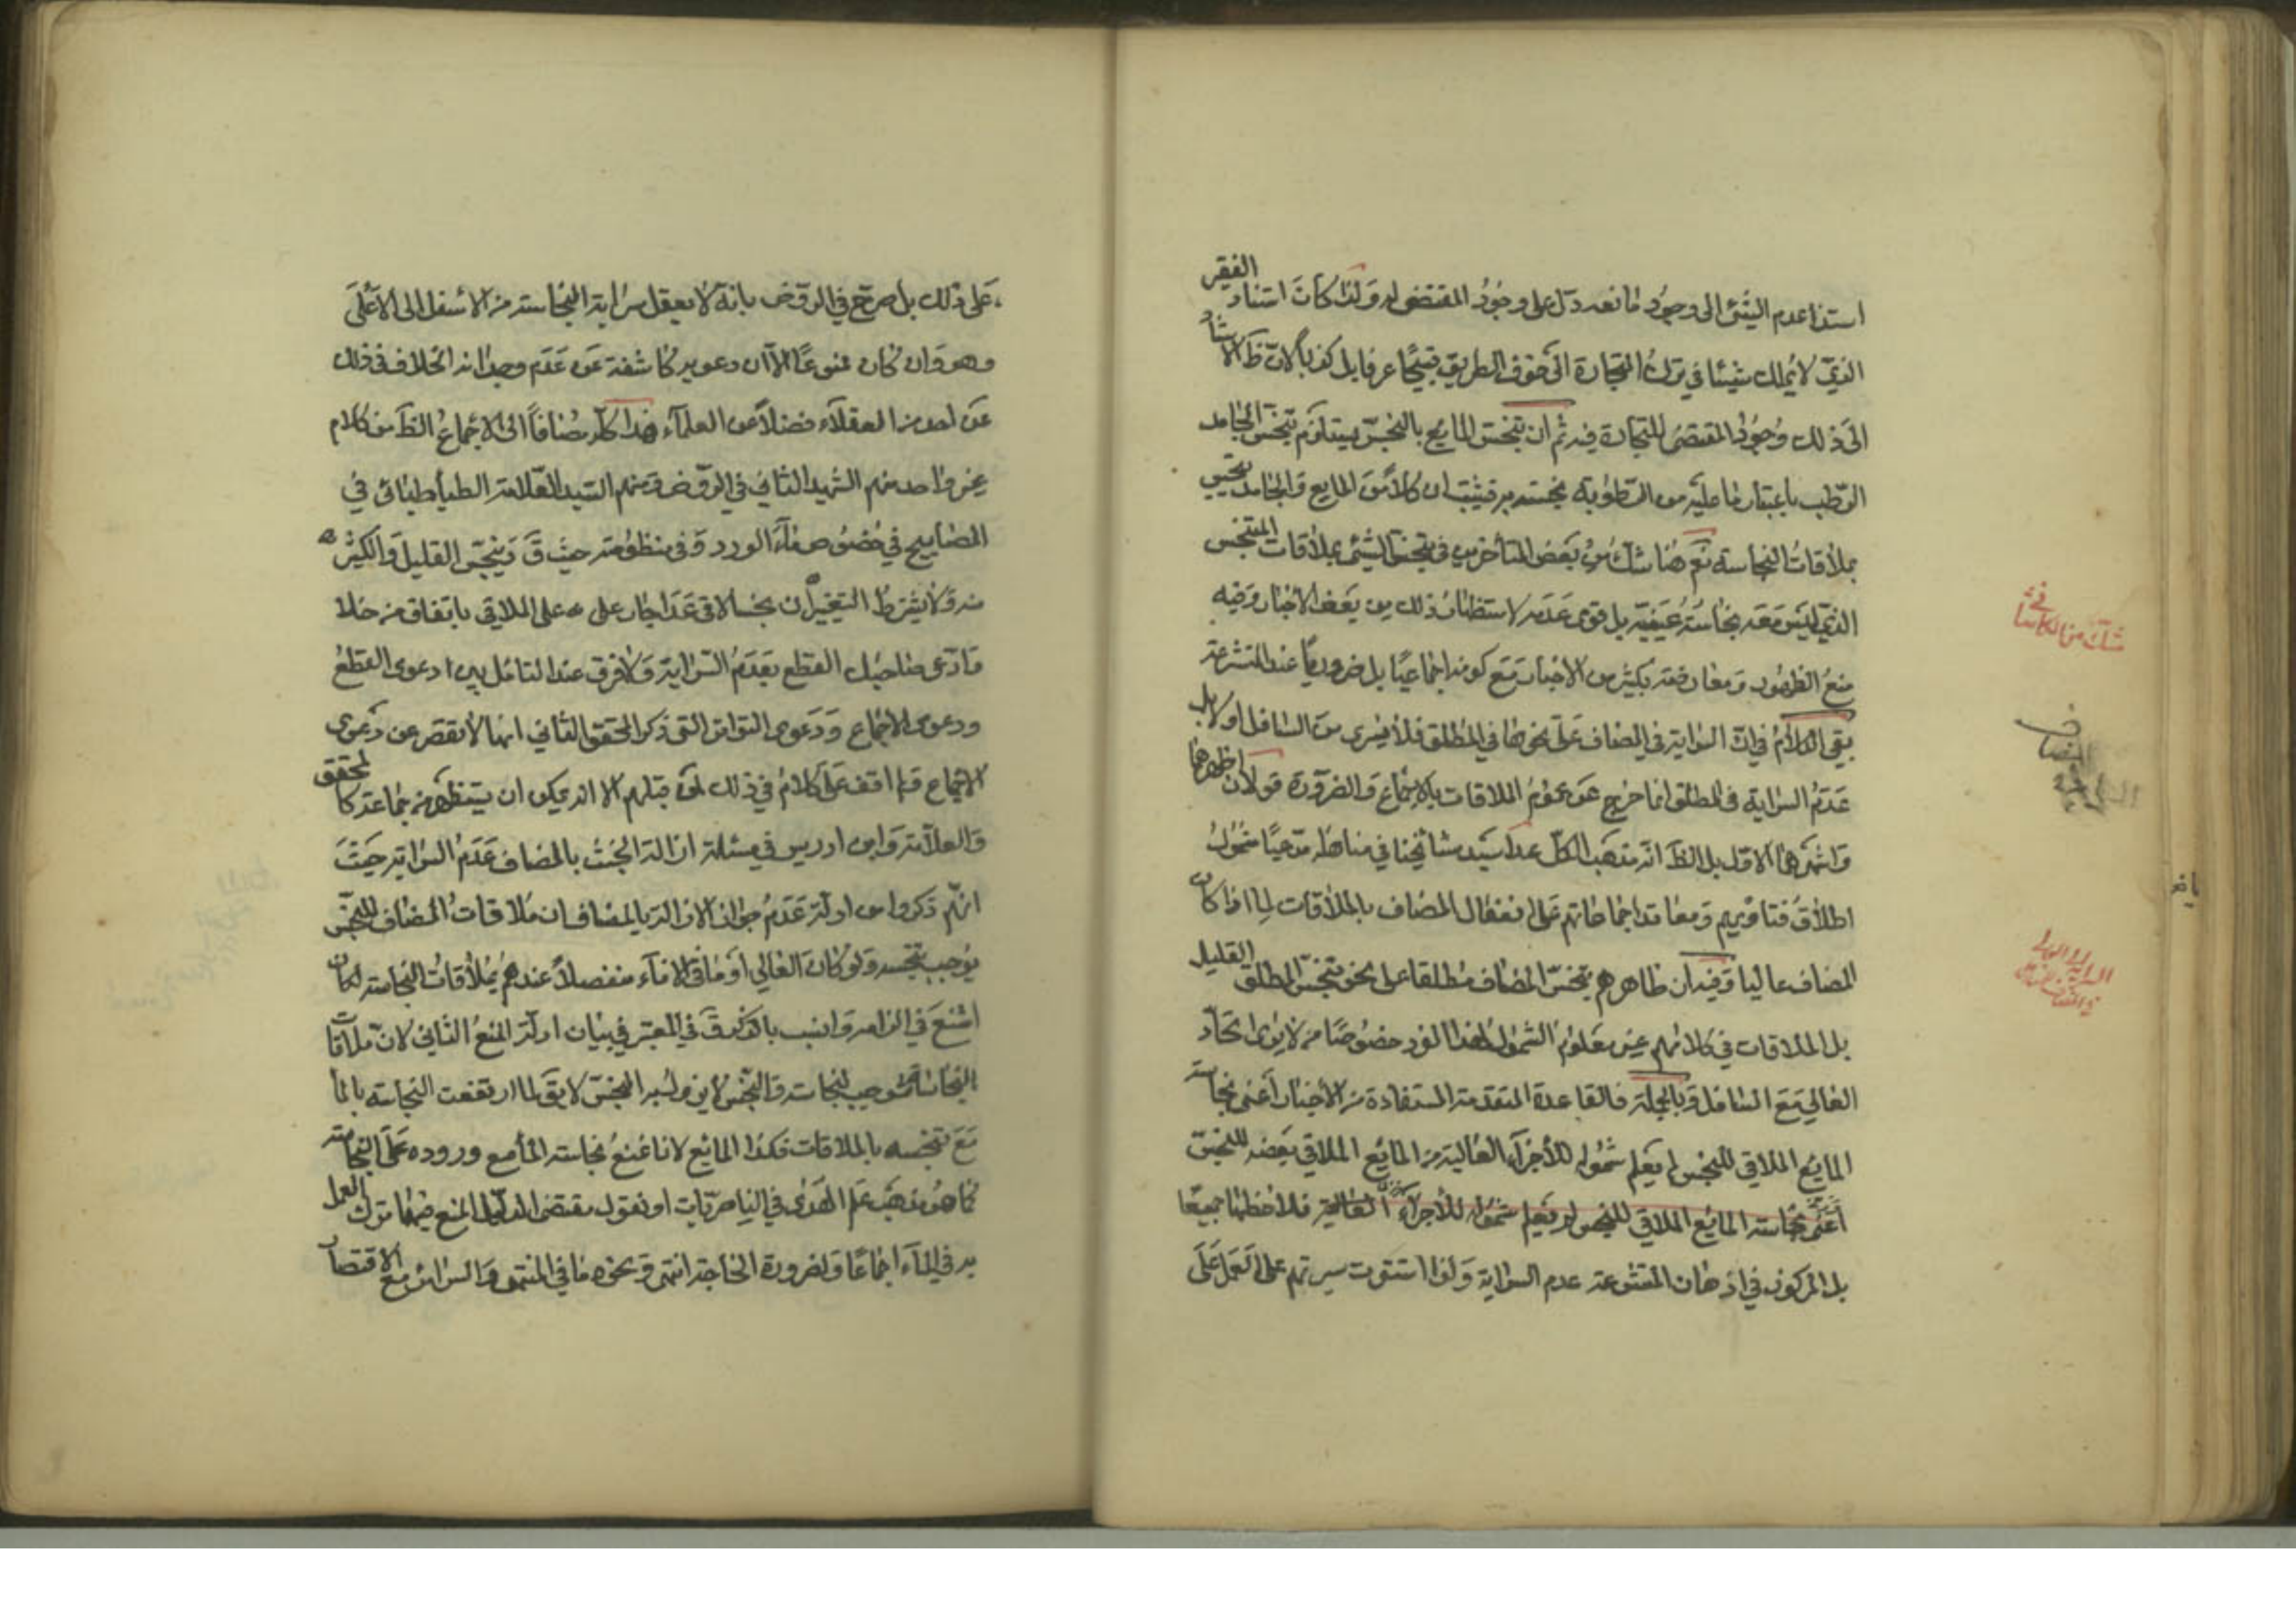 استناد عدم الشئ الى وجود مانعه دل على وجود المقتضى له ولذا كان استناد الفقير
الذي لا يملك شيئا في ترك التجارة الى خوف الطريق قبيحا عرفا بل كذبا لان ظ الاسناد
الى ذلك وجود المقتضى للتجارة فيه ثم ان تنجس المايع بالنجس يستلزم تنجس الجامد
الرطب باعتبار ما عليه من الرطوبة نجسته به فيثبت ان كلا من المايع والجامد
بملاقات النجاسة نعم هنا شك من بعض المتأخرين في تنجس الشئ بملاقات المتنجس
الذي ليس معه نجاسة عينية بل قوى عدمه لاستظهار ذلك من بعض الاخبار وفيه
منع الظهور ومعارضته بكثير من الاخبار مع كونه اجماعيا بل ضروريا عند المتشرعة
بقي الكلام في ان السراية في المضاف على نحوها في المطلق فلا يسرى من السافل او لا بل
عدم السراية في المطلق انما خرج عن عموم الملاقات بالاجماع والضرورة قولان اظهرهما
واشهرهما الاول بل الظ انه مذهب الكل عدا سيد مشايخنا في مناهله مدعيا شمول
اطلاق فتاويهم ومعاقد اجماعاتهم على انفعال المضاف بالملاقات لما اذا كان
المضاف عاليا وفيه ان ظاهرهم تنجس المضاف مطلقا على نحو تنجس المطلق القليل
بل الملاقات في كلامهم غير معلوم الشمول لهذا الفرد خصوصا من لا يرى اتحاد
العالي مع السافل وبالجملة فالقاعدة المتقدمة المستفادة من الأخبار أعنى نجاسة
المايع الملاقي للنجس لم يعلم شموله للأجزاء العالية من المايع الملاقي بعضه للنجس
أعنى نجاسة المايع الملاقي للنجس لم يعلم شموله للأجزاء العالية فلاحظها جميعا
بل المركوز في اذهان المتشرعة عدم السراية ولذا استقرت سيرتهم على العمل على
شك من الكاشا في
على ذلك بل صرح في الروض بانه لا يعقل سراية النجاسة من الاسفل الى الاعلى
وهو وان كان ممنوعا الا ان دعويه كاشفة عن عدم وجدانه الخلاف في ذلك
عن احد من العقلاء فضلا عن العلماء هذا كله مضافا الى الاجماع الظ من كلام
غير واحد منهم الشهيد الثاني في الروض ومنهم السيد العلامة الطباطبائي في
المصابيح في خصوص ماء الورد وفي منظومته حيث ق وينجس القليل والكثير
منه ولا يشترط التغيير ان نجسا لاقى عدا جار على على الملاقي باتفاق من خلا
وادعى صاحب القطع بعدم السراية ولا فرق عند التأمل بين دعوى القطع
ودعوى الاجماع ودعوى التواتر التى ذكر المحقق الثاني انها لا تقصر عن دعوى
الاجماع ولم اقف على كلام في ذلك لمن قبلهم الا انه يمكن ان يستظهر من جماعة كالمحقق
والعلامة وابن ادريس في مسئلة ازالة الخبث بالمضاف عدم السراية حيث
انهم ذكروا من ادلة عدم جواز الازالة بالمضاف ان ملاقات المضاف للنجس
يوجب تنجسه ولو كان العالي او ما في الاناء منفصلا عندهم بملاقات النجاسة لكان
اشنع في الزام وانسب بالذكر ق في المعتبر في بيان ادلة المنع الثاني لان ملاقات
النجاسة موجب لنجاسته والنجس لا يزول به النجس لا يق لما ارتفعت النجاسة بالماء
مع تنجسه بالملاقات فكذا المايع لانا نمنع نجاسة الماء مع وروده على النجاسة
كما هو مذهب علم الهدى في الناصريات او نقول مقتضى الدليل المنع فيهما ترك العمل
به في الماء اجماعا ولضرورة الحاجة انتهى ونحوه ما في المنتهى والسرائر مع الاقتصار